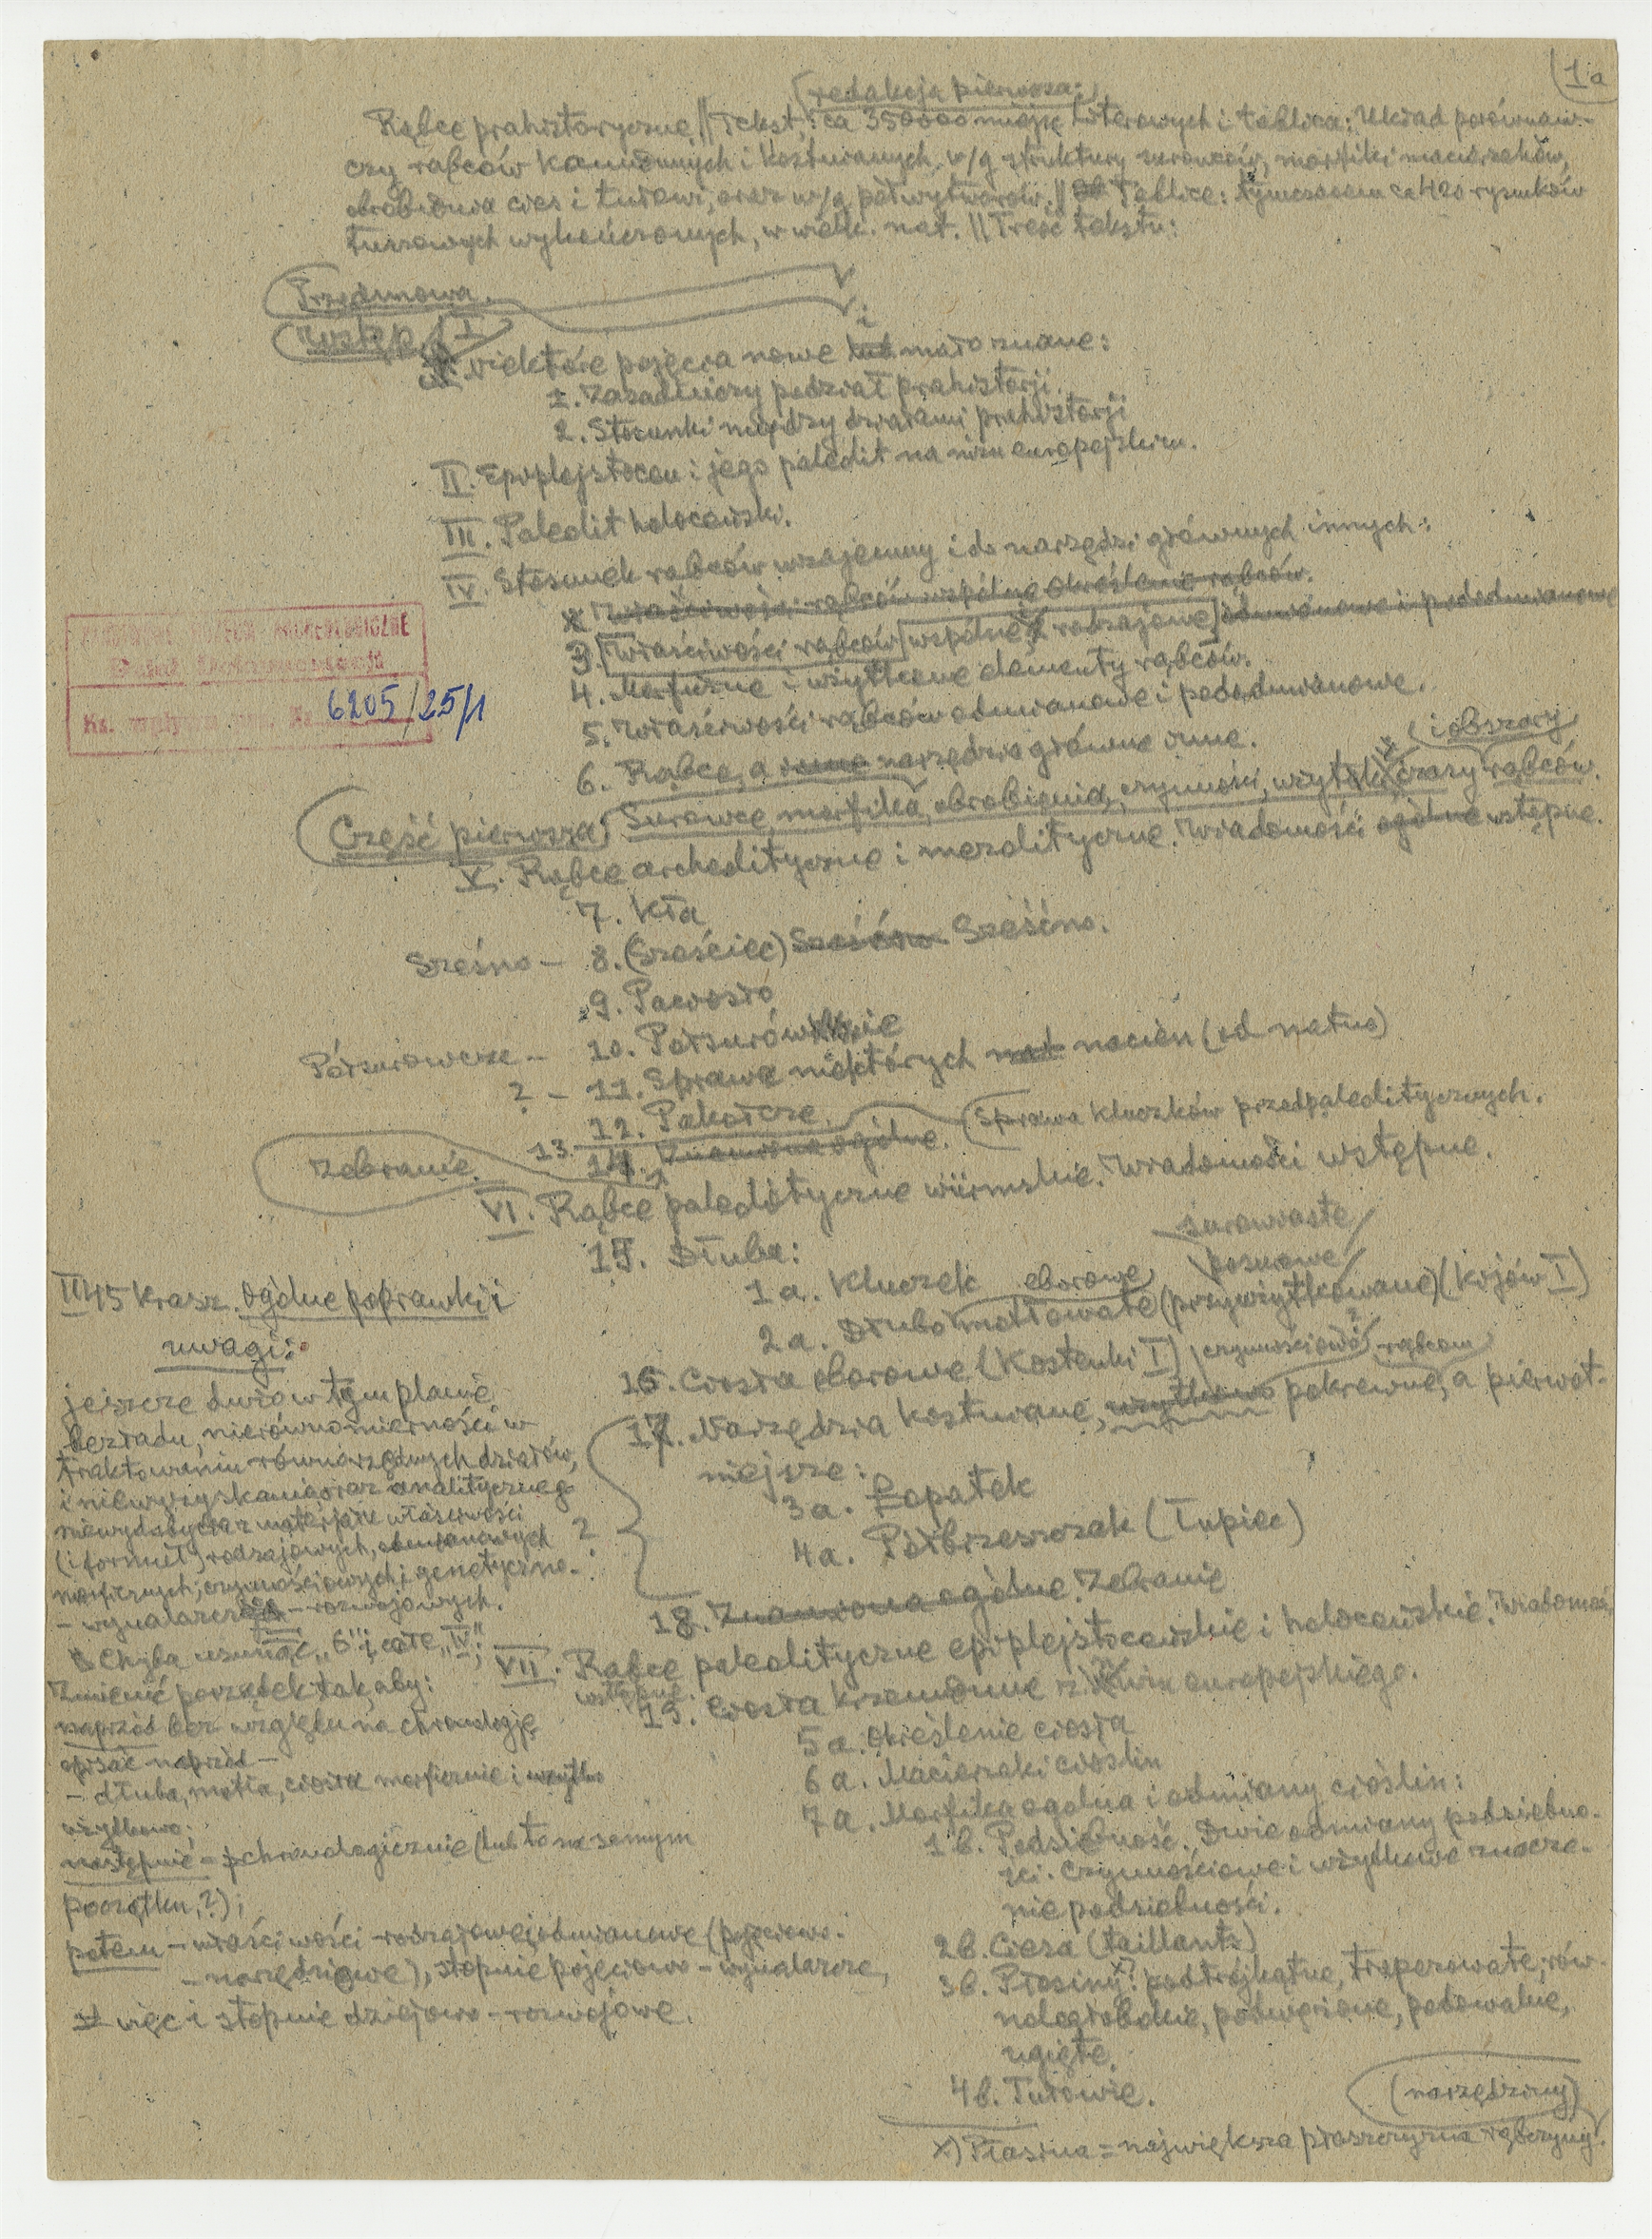 1a
(redakcja pierwsza:)
Rąbce prahistoryczne || Tekst: ca 350000 miejsc literowych i tablice: Układ porównaw-
czy rąbców kamiennych i kościanych, w/g struktury surowców, morfiki macierzaków,
obrobienia cies i tułowi, oraz w/g półwytworów. || Tablice: tymczasem ca 420 rysunków
tuszowych wykończonych, w wielk. nat. || Treść tekstu:
Przedmowa.
Wstęp. I
Niektóre pojęcia nowe i mało znane:
1. Zasadniczy podział prahistorji.
2. Stosunki między działami prahistorji
II. Epiplejstocen i jego paleolit na niżu europejskim.
III. Paleolit holoceński.
IV. Stosunek rąbców wzajemny i do narzędzi głównych innych:
Właściwości rąbców wspólne określenie rąbców.
3. Właściwości rąbców wspólne i rodzajowe odmianowe i pododmianowe
4. Morficzne i użytkowe elementy rąbców.
5. Właściwości rąbców odmianowe i pododmianowe.
6. Rąbce, a inne narzędzia główne inne.
i obszary
Część pierwsza. Surowce, morfika, obrobienia, czynności, użytki, czasy rąbców.
V. Rąbce archeolityczne i mezolityczne. Wiadomości ogólne wstępne.
7. Kła
Sześno – 8. (Sześciec) Sześcino.
9. Pacrosło
Półsurowcze – 10. Półsurów
? – 11. Sprawa niektórych nacien (od natus)
12. Pakołcze. (Sprawa kluczków przedpaleolitycznych.
13.
14. Znamiona ogólne.
Zebranie.
VI. Rąbce paleolityczne würmskie. Wiadomości wstępne.
15. Dłuba:
surowiaste
1a. Kluczek eborowe posurowe
2a. Dłubo motłowate (przyużytkowane) (Kijów I)
16. Ciosła eborowe (Kostenki I) czynnościowo rąbcom
17. Narzędzia kościane, użytkowo pokrewne, a pierwot-
niejsze:
3a. Łopatek
4a. Półbrzeszczak (Łupiec)
?
18. Znamiona ogólne. Zebranie
VII. Rąbce paleolityczne epiplejstoceńskie i holoceńskie. Wiadomości
wstępne.
19. Ciosła krzemienne z niżu europejskiego.
5a. Określenie ciosła
6a. Macierzaki cioślin
7a. Morfika ogólna i odmiany cioślin:
1b. Podsiebność. Dwie odmiany podsiebno-
ści. Czynnościowe i użytkowe znacze-
nie podsiebności.
2b. Ciesa (taillants)
3b. Płasiny x): podtrójkątne, trapezowate, rów-
noległoboki, podwężone, podowalne,
ugięte.
4b. Tułowie.
(narzędziny)
x) Płasina = największa płaszczyzna rąbczyny.
II 45 Krasz. Ogólne poprawki i
uwagi:
jeszcze dużo w tym planie
bezładu, nierównomierności w
traktowaniu równorzędnych działów,
i niewyzyskania oraz analitycznego
niewydobycia z materjału właściwości
(i formuł) rodzajowych, odmianowych
morficznych, czynnościowych i genetyczno-
– wynalazczo – rozwojowych.
Chyba usunąć „6” i całe „IV”;
Zmienić porządek tak, aby:
naprzód bez względu na chronologję
opisać naprzód –
– dłuba, motła, ciosła morficznie i
użytkowo;
następnie – chronologicznie (lub to na samym
początku, ?);
potem – właściwości rodzajowe, odmianowe (pojęciowo-
– narzędziowe), stopnie pojęciowo – wynalazcze,
więc i stopnie dziejowo – rozwojowe.
6205/25/1